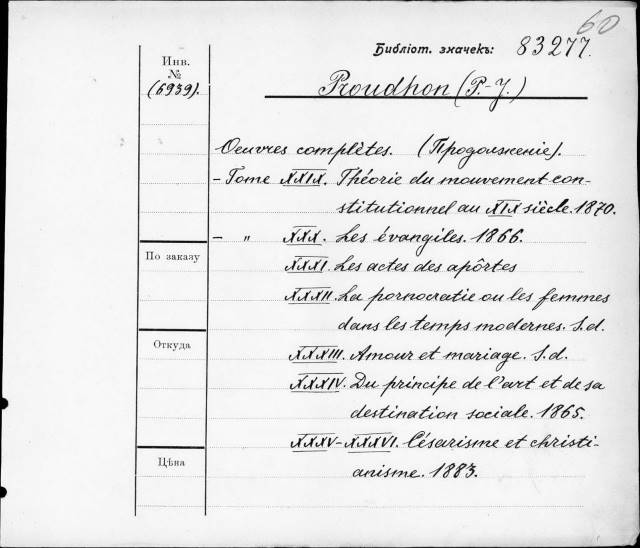 60
Библіот. значекъ: 83277.
Инв.
№
(6939).
Proudhon (P.-J.)
Oeuvres complètes. (Продолженіе).
- Tome XXIX. Théorie du mouvement con-
stitutionnel au XIX siècle. 1870.
- " XXX. Les évangiles. 1866.
По заказу
XXXI. Les actes des apôrtes
XXXII. La pornocratie ou les femmes
dans les temps modernes. S.d.
Откуда
XXXIII. Amour et mariage. S.d.
XXXIV. Du principe de l'art et de sa
destination sociale. 1865.
XXXV-XXXVI. Césarisme et christi-
Цѣна
anisme. 1883.